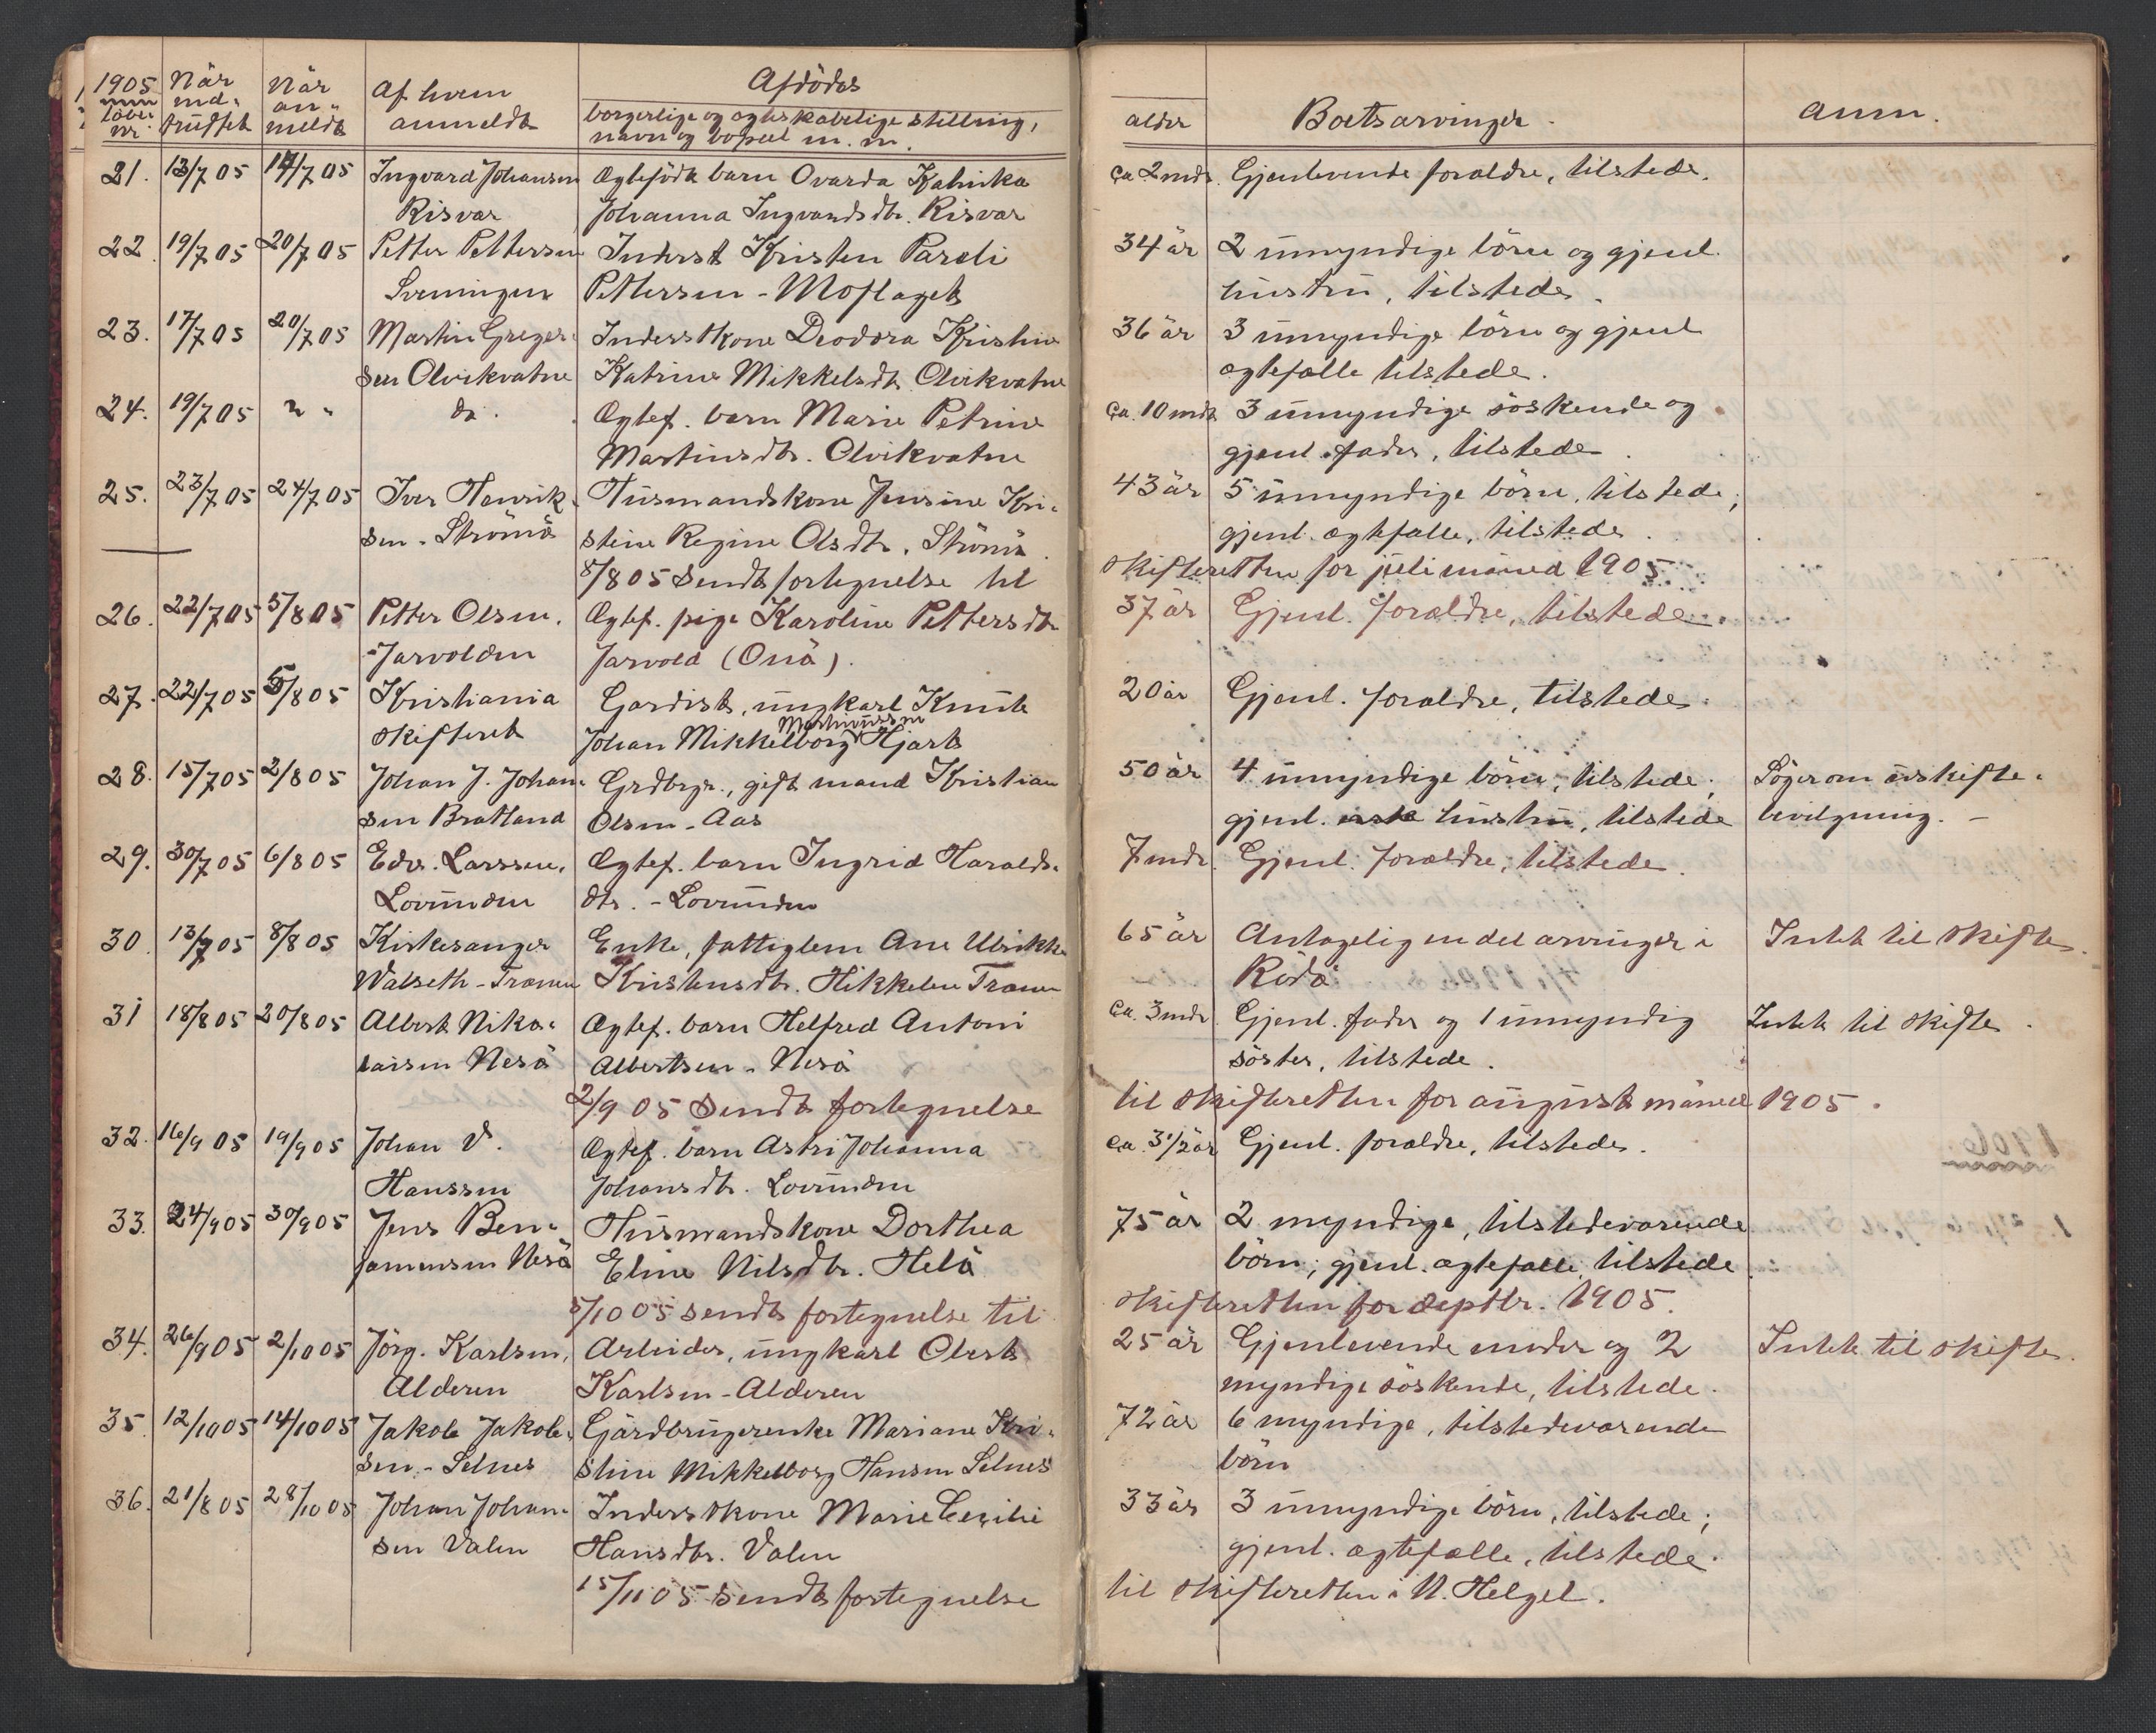 1905 Når Når Af hvem Afdödes alder Boets arvinger. anm.
löbe nr. ind- truffet an- meldt anmeldt borgerlige og egteskabelige stilling, navn og bopæl m. m.
21. 13/7 05 14/7 05 Ingvard Johansen Ægtefödt barn Ovarda ca 2 mdr. Gjenlevende forældre, tilstede.
Risvær Johanna Ingvardsdtr. Risvær
22. 19/7 05 20/7 05 Petter Pettersen Inderst Kristen Pareli 34 år 2 umyndige börn og gjenl.
Sveningen Pettersen - Moflaget hustru, tilstede.
23. 17/7 05 20/7 05 Martin Greger- Inderstkone Deodora Kristine 36 år 3 umyndige börn og gjenl
sen Olvikvatne Katrine Mikkelsdtr. Olvikvatne ægtefælle tilstede.
24. 19/7 05 " " do. Ægtef. barn Marie Petrine ca. 10 mdr 3 umyndige söskende og
Martinsdtr. Olvikvatne gjenl. fader, tilstede.
25. 23/7 05 24/7 05 Iver Henrik- Husmandskone Jensine Kri- 43 år 5 umyndige börn, tilstede;
sen - Strömö stine Regine Olsdtr. Strömö. gjenl. ægtefælle, tilstede.
8/8 05 Sendt fortegnelse til skifteretten for juli måned 1905
26. 22/7 05 5/8 05 Petter Olsen, Ægtef. pige Karoline Pettersdtr 37 år Gjenl. forældre, tilstede.
- Jarvolden Jarvold (Onö).
27. 22/7 05 5/8 05 Kristiania Gardist, ungkarl Knut 20 år Gjenl. forældre, tilstede.
skifteret Johan Mikkelborg Martinussen Hjart
28. 15/7 05 2/8 05 Johan J. Johan- Grdbrgr., gift mand Kristian 50 år 4 umyndige börn, tilstede; Söger om uskifte-
sen Bratland Olsen - Aas gjenl. hustru, tilstede bevilgning. -
29. 30/7 05 6/8 05 Edv. Larssen, Ægtef. barn Ingrid Haralds- 7 mdr. Gjenl. forældre, tilstede.
Lovunden dtr. - Lovunden
30. 13/7 05 8/8 05 Kirkesanger Enke, fattiglem Ane Ulrikke 65 år Antagelig en del arvinger i Intet til skifte.
Walseth - Trænen Kristensdtr. Hikkelen Trænen Rödö
31 18/8 05 20/8 05 Albert Niko- Ægtef. barn Helfred Antoni ca. 3 mdr Gjenl. fader og 1 umyndig Intet til skifte.
laisen Nesö Albertsen - Nesö söster, tilstede.
2/9 05 Sendt fortegnelse til skifteretten for august måned 1905.
32. 16/9 05 19/9 05 Johan V. Ægtef. barn Astri Johanna ca. 3 1/2 år Gjenl. forældre, tilstede.
Hanssen Johansdtr. Lovunden
33. 24/9 05 30/9 05 Jens Ben- Husmandskone Dorthea 75 år 2 myndige, tilstedeværende
jaminsen Nesö Eline Nilsdtr. Nesö börn; gjenl. ægtefælle, tilstede
5/10 05 sendt fortegnelse til skifteretten for septbr. 1905.
34. 26/9 05 2/10 05 Jörg. Karlsen, Arbeider, ungkarl Olert 25 år Gjenlevende moder og 2 Intet til skifte.
Alderen Karlsen - Alderen myndige söskende, tilstede.
35. 12/10 05 14/10 05 Jakob Jakob- Gårdbrugerenke Mariane Kri- 72 år 6 myndige, tilstedeværende
sen - Selnes stine Mikkelborg Hansen Selnes börn
36. 21/8 05 28/10 05 Johan Johan- Inderstkone Marie Cecilie 33 år 3 umyndige börn, tilstede;
sen Valen Hansdtr. Valen gjenl. ægtefælle, tilstede.
15/11 05 sendt fortegnelse til skifteretten i N. Helgel.